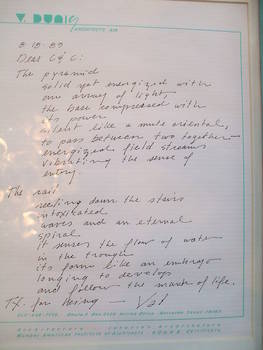 V. DUNIG
ARCHITECTS AIA
8·18·89
Dear C & C:
The pyramid
solid yet energized with
an array of light
the base compressed with
its power
silent like a mute oriental,
to pass between two together —
energized field streams
vibrating the sense of
entry.
The rail
reeling down the stairs
intoxicated
waves and an eternal
spiral
it senses the flow of water
in the trough
its form like an embryo
longing to develop
and follow the mark of life.
TX. for being — Val